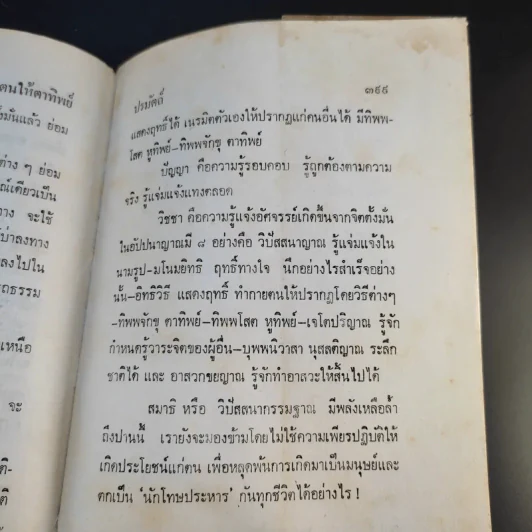 คนให้ตาทิพย์
งมั่นแล้ว ย่อม
ต่าง ๆ ย่อม
ณ์เดียวเป็น
ทาง จะใช้
บ่าลงทาง
ลงไปใน
ถธรรม
เหนือ
จะ
ติ-
ติ
ปรมัตถ์ ๓๙๙
แสดงฤทธิ์ได้ เนรมิตตัวเองให้ปรากฏแก่คนอื่นได้ มีทิพพ-
โสต หูทิพย์-ทิพพจักขุ ตาทิพย์
ปัญญา คือความรู้รอบคอบ รู้ถูกต้องตามความ
จริง รู้แจ่มแจ้งแทงตลอด
วิชชา คือความรู้แจ้งอัศจรรย์เกิดขึ้นจากจิตตั้งมั่น
ในอัปปนาญาณมี ๘ อย่างคือ วิปัสสนาญาณ รู้แจ่มแจ้งใน
นามรูป-มโนมยิทธิ ฤทธิ์ทางใจ นึกอย่างไรสำเร็จอย่าง
นั้น-อิทธิวิธี แสดงฤทธิ์ ทำกายตนให้ปรากฏโดยวิธีต่างๆ
-ทิพพจักขุ ตาทิพย์-ทิพพโสต หูทิพย์-เจโตปริญาณ รู้จัก
กำหนดรู้วาระจิตของผู้อื่น-บุพพนิวาสา นุสสติญาณ ระลึก
ชาติได้ และ อาสวกขยญาณ รู้จักทำอาสวะให้สิ้นไปได้
สมาธิ หรือ วิปัสสนากรรมฐาน มีพลังเหลือล้ำ
ถึงปานนี้ เรายังจะมองข้ามโดยไม่ใช้ความเพียรปฏิบัติให้
เกิดประโยชน์แก่ตน เพื่อหลุดพ้นการเกิดมาเป็นมนุษย์และ
ตกเป็น 'นักโทษประหาร' กันทุกชีวิตได้อย่างไร !